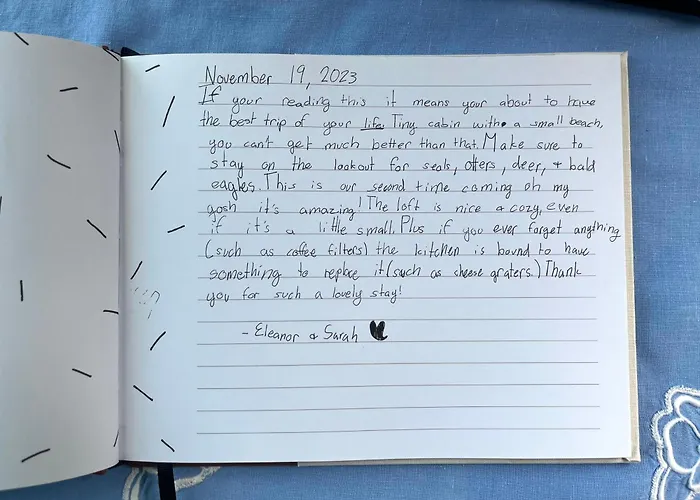 November 19, 2023
If your reading this it means your about to have
the best trip of your life. Tiny cabin with a small beach,
you can't get much better than that. Make sure to
stay on the lookout for seals, otters, deer, + bald
eagles. This is our second time coming oh my
gosh it's amazing! The loft is nice & cozy, even
if it's a little small. Plus if you ever forget anything
(such as coffee filters) the kitchen is bound to have
something to replace it (such as cheese graters.) Thank
you for such a lovely stay!
- Eleanor & Sarah ♥